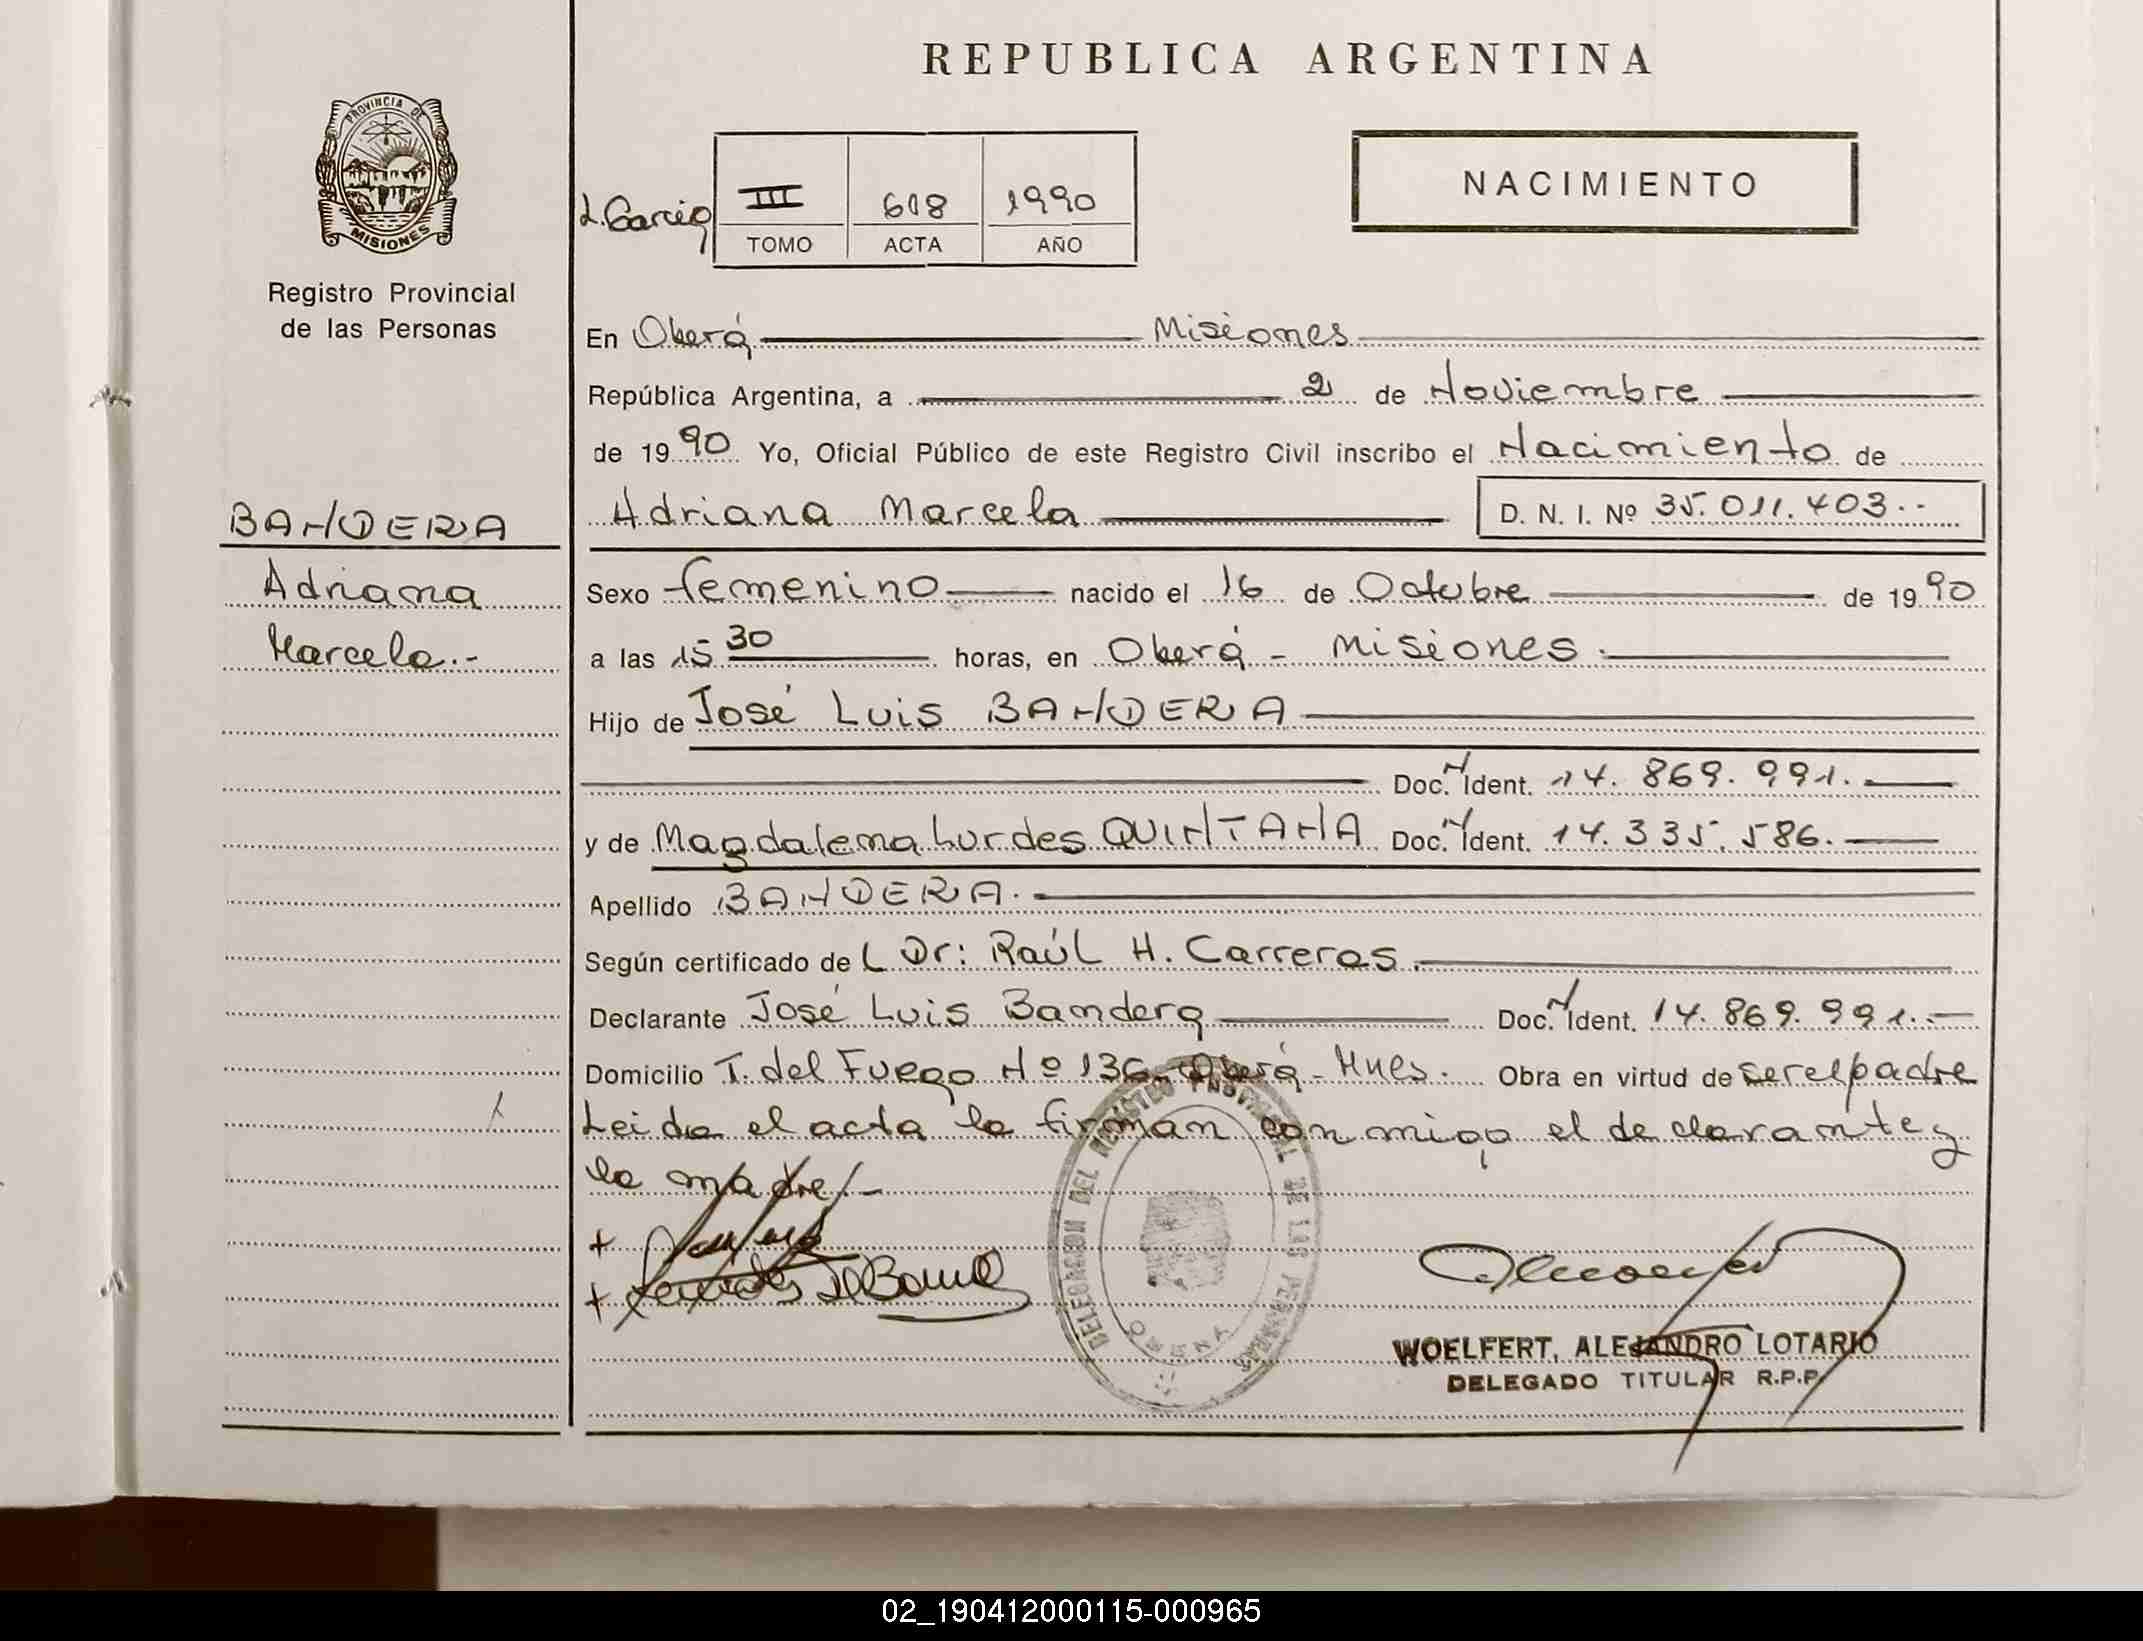 REPUBLICA ARGENTINA
PROVINCIA DE
MISIONES
Registro Provincial
de las Personas
L. Garcia
III 618 1990
TOMO ACTA AÑO
NACIMIENTO
En Oberá Misiones
República Argentina, a 2 de Noviembre
de 1990 Yo, Oficial Público de este Registro Civil inscribo el Nacimiento de
Adriana Marcela D. N. I. Nº 35.011.403.-
BANDERA
Adriana
Marcela.-
Sexo femenino nacido el 16 de Octubre de 1990
a las 15 30 horas, en Oberá - Misiones.
Hijo de José Luis BANDERA
Doc. N Ident. 14.869.991.
y de Magdalena Lurdes QUINTANA Doc. N Ident. 14.335.586.
Apellido BANDERA.
Según certificado del Dr: Raúl H. Carreras.
Declarante José Luis Bandera Doc. N Ident. 14.869.991.-
Domicilio T. del Fuego Nº 136 - Oberá - Mnes. Obra en virtud de ser el padre
Leida el acta la firman conmigo el declarante y
la madre.-
DELEGACION DEL REGISTRO PROVINCIAL DE LAS PERSONAS
WOELFERT, ALEJANDRO LOTARIO
DELEGADO TITULAR R.P.P.
02_190412000115-000965